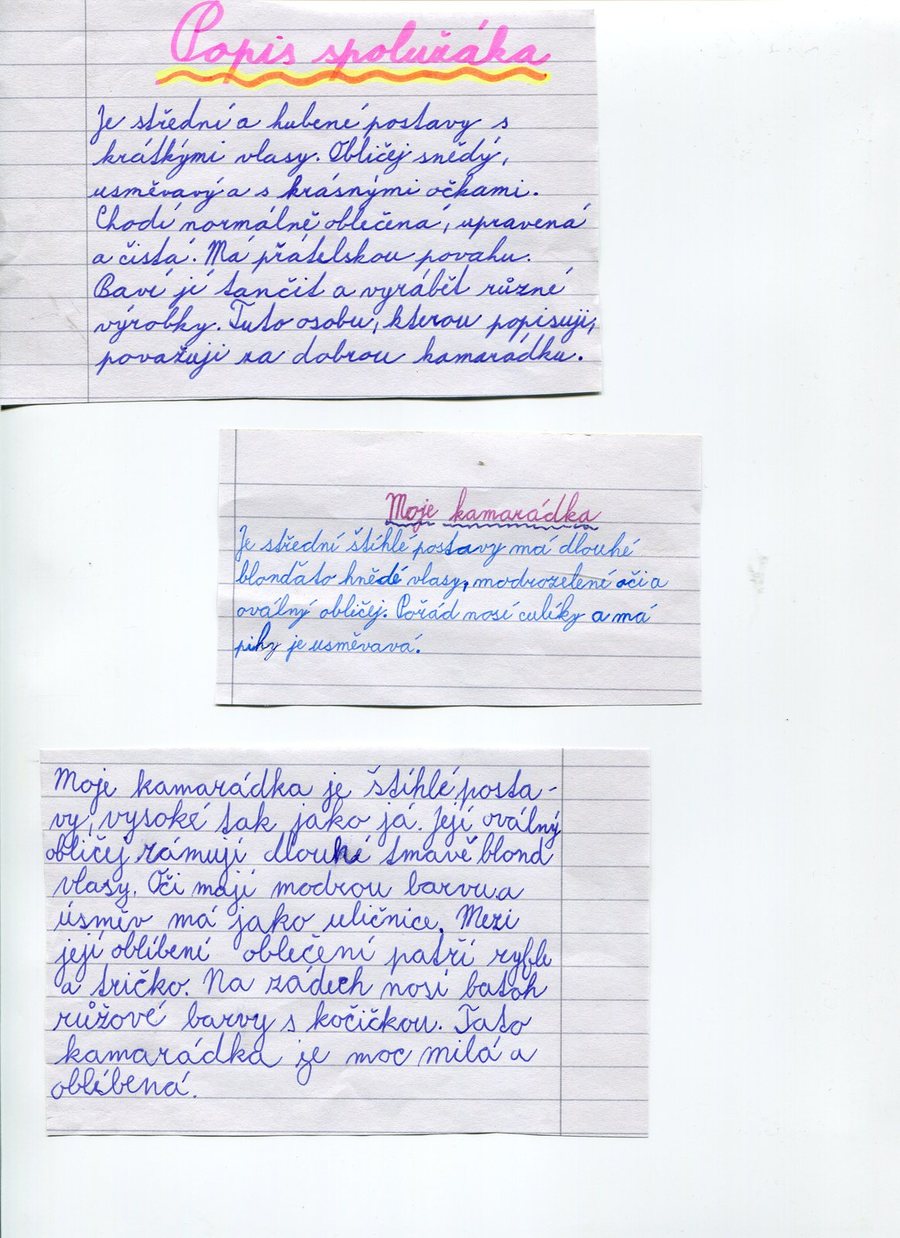 Popis spolužáka
Je střední a hubené postavy s
krátkými vlasy. Obličej snědý,
usměvavý a s krásnými očkami.
Chodí normálně oblečená, upravená
a čistá. Má přátelskou povahu.
Baví jí tančit a vyrábět různé
výrobky. Tuto osobu, kterou popisuji,
považuji za dobrou kamarádku.
Moje kamarádka
Je střední štíhlé postavy má dlouhé
blonďato hnědé vlasy, modrozelené oči a
oválný obličej. Pořád nosí culíky a má
pihy je usměvavá.
Moje kamarádka je štíhlé posta-
vy, vysoké tak jako já. Její oválný
obličej rámují dlouhé tmavě blond
vlasy. Oči mají modrou barvu a
úsměv má jako uličnice. Mezi
její oblíbení oblečení patří ryfle
a tričko. Na zádech nosí batoh
růžové barvy s kočičkou. Tato
kamarádka je moc milá a
oblíbená.